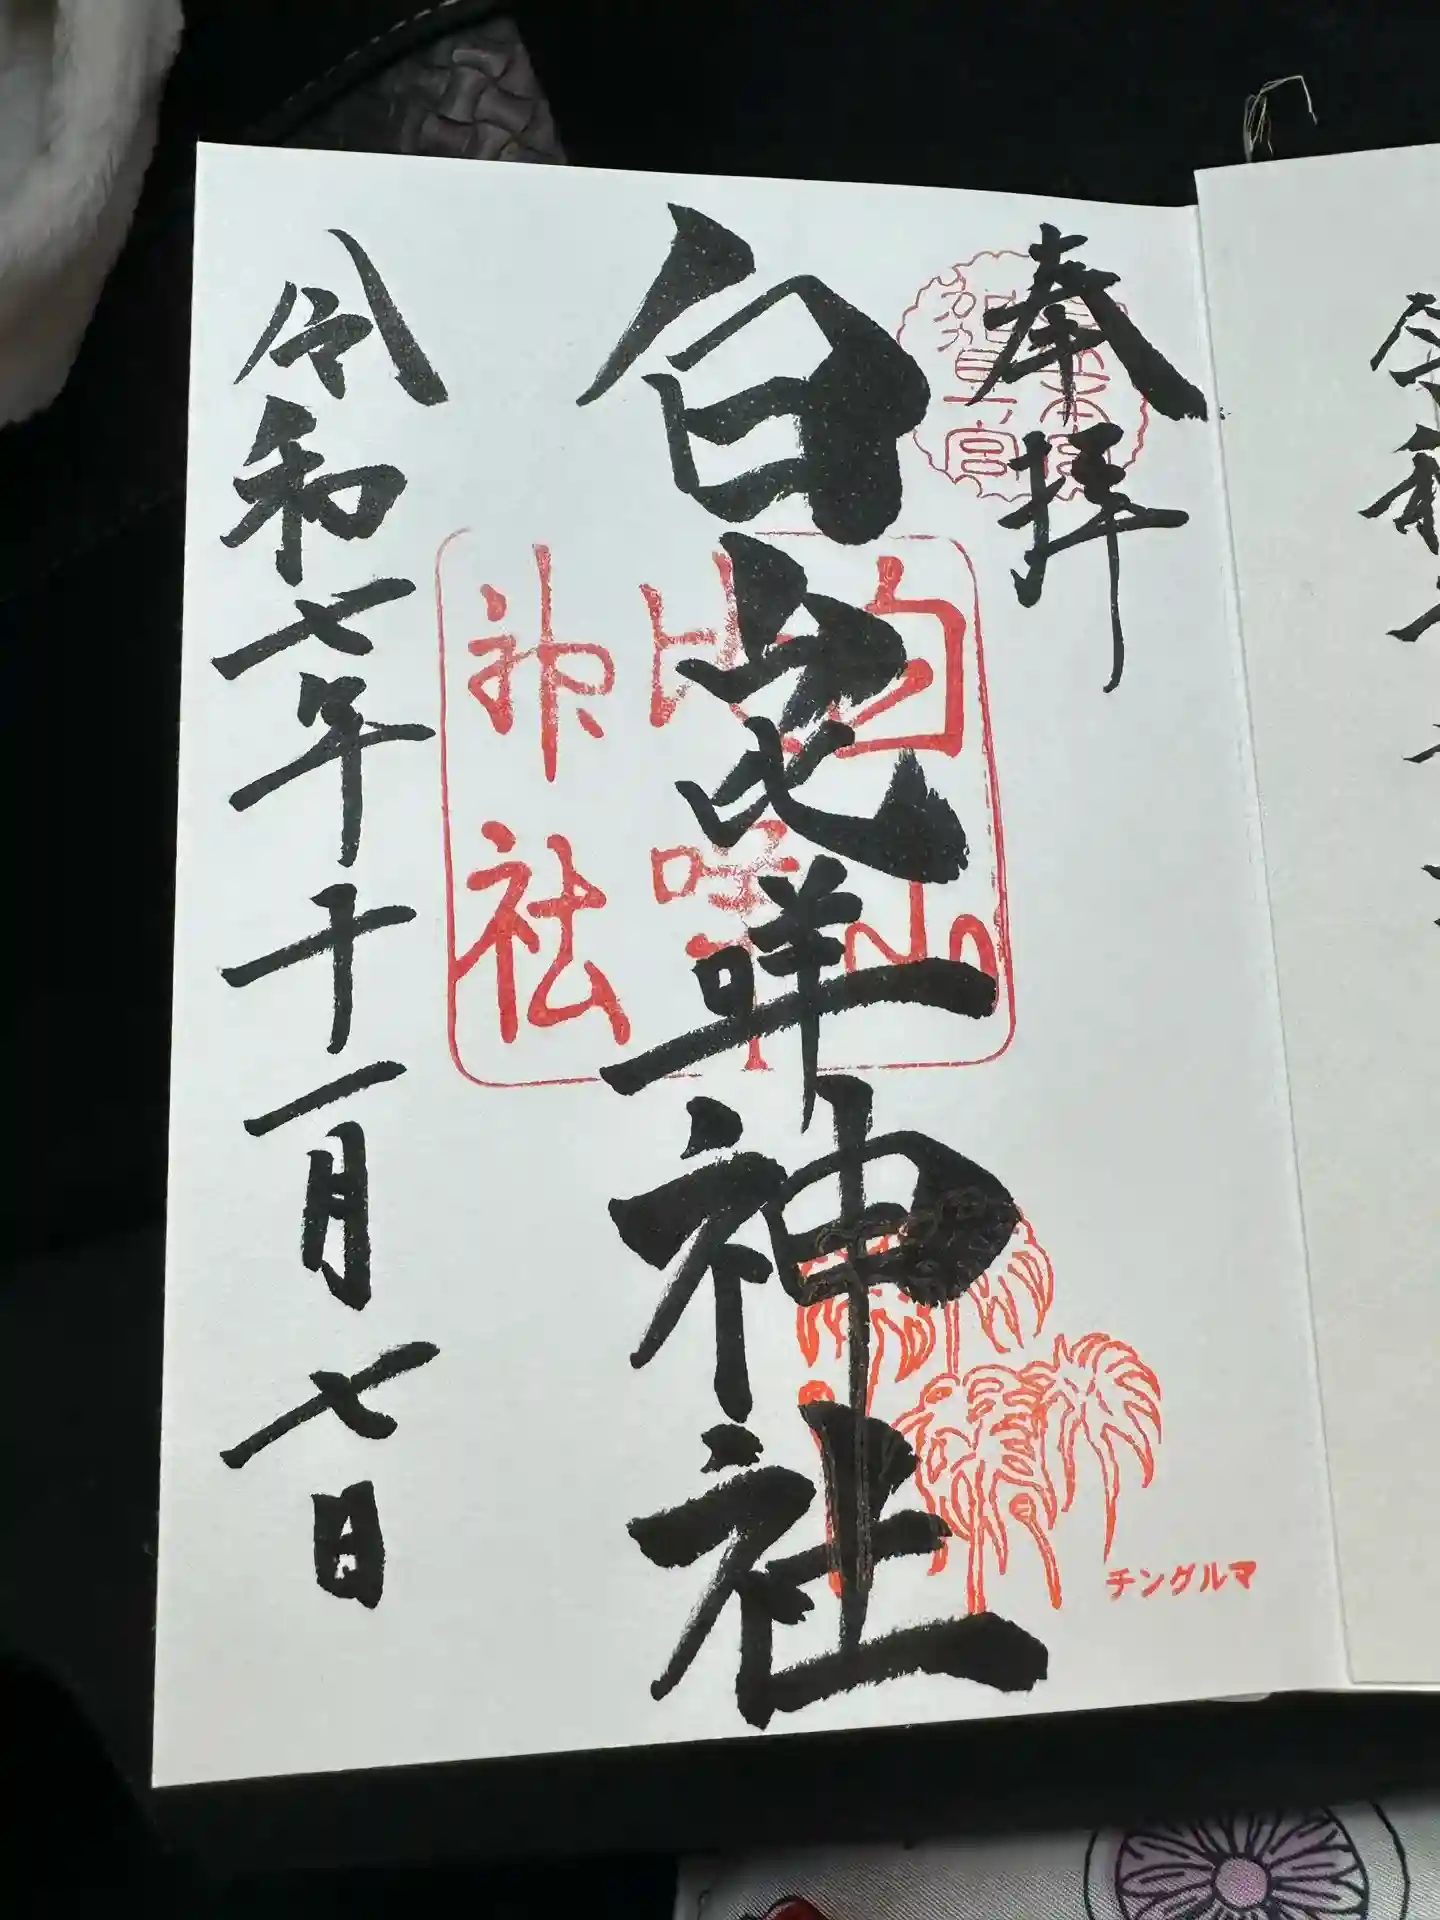 令和
奉拝
加賀一宮
白山比咩神社
白山
比咩
神社
チングルマ
令和七年十一月七日